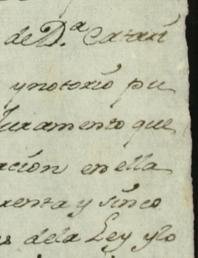 de D.ª Catari
y notorio pu
Juramento que
ación en ella
renta y sinco
es dela Ley y lo